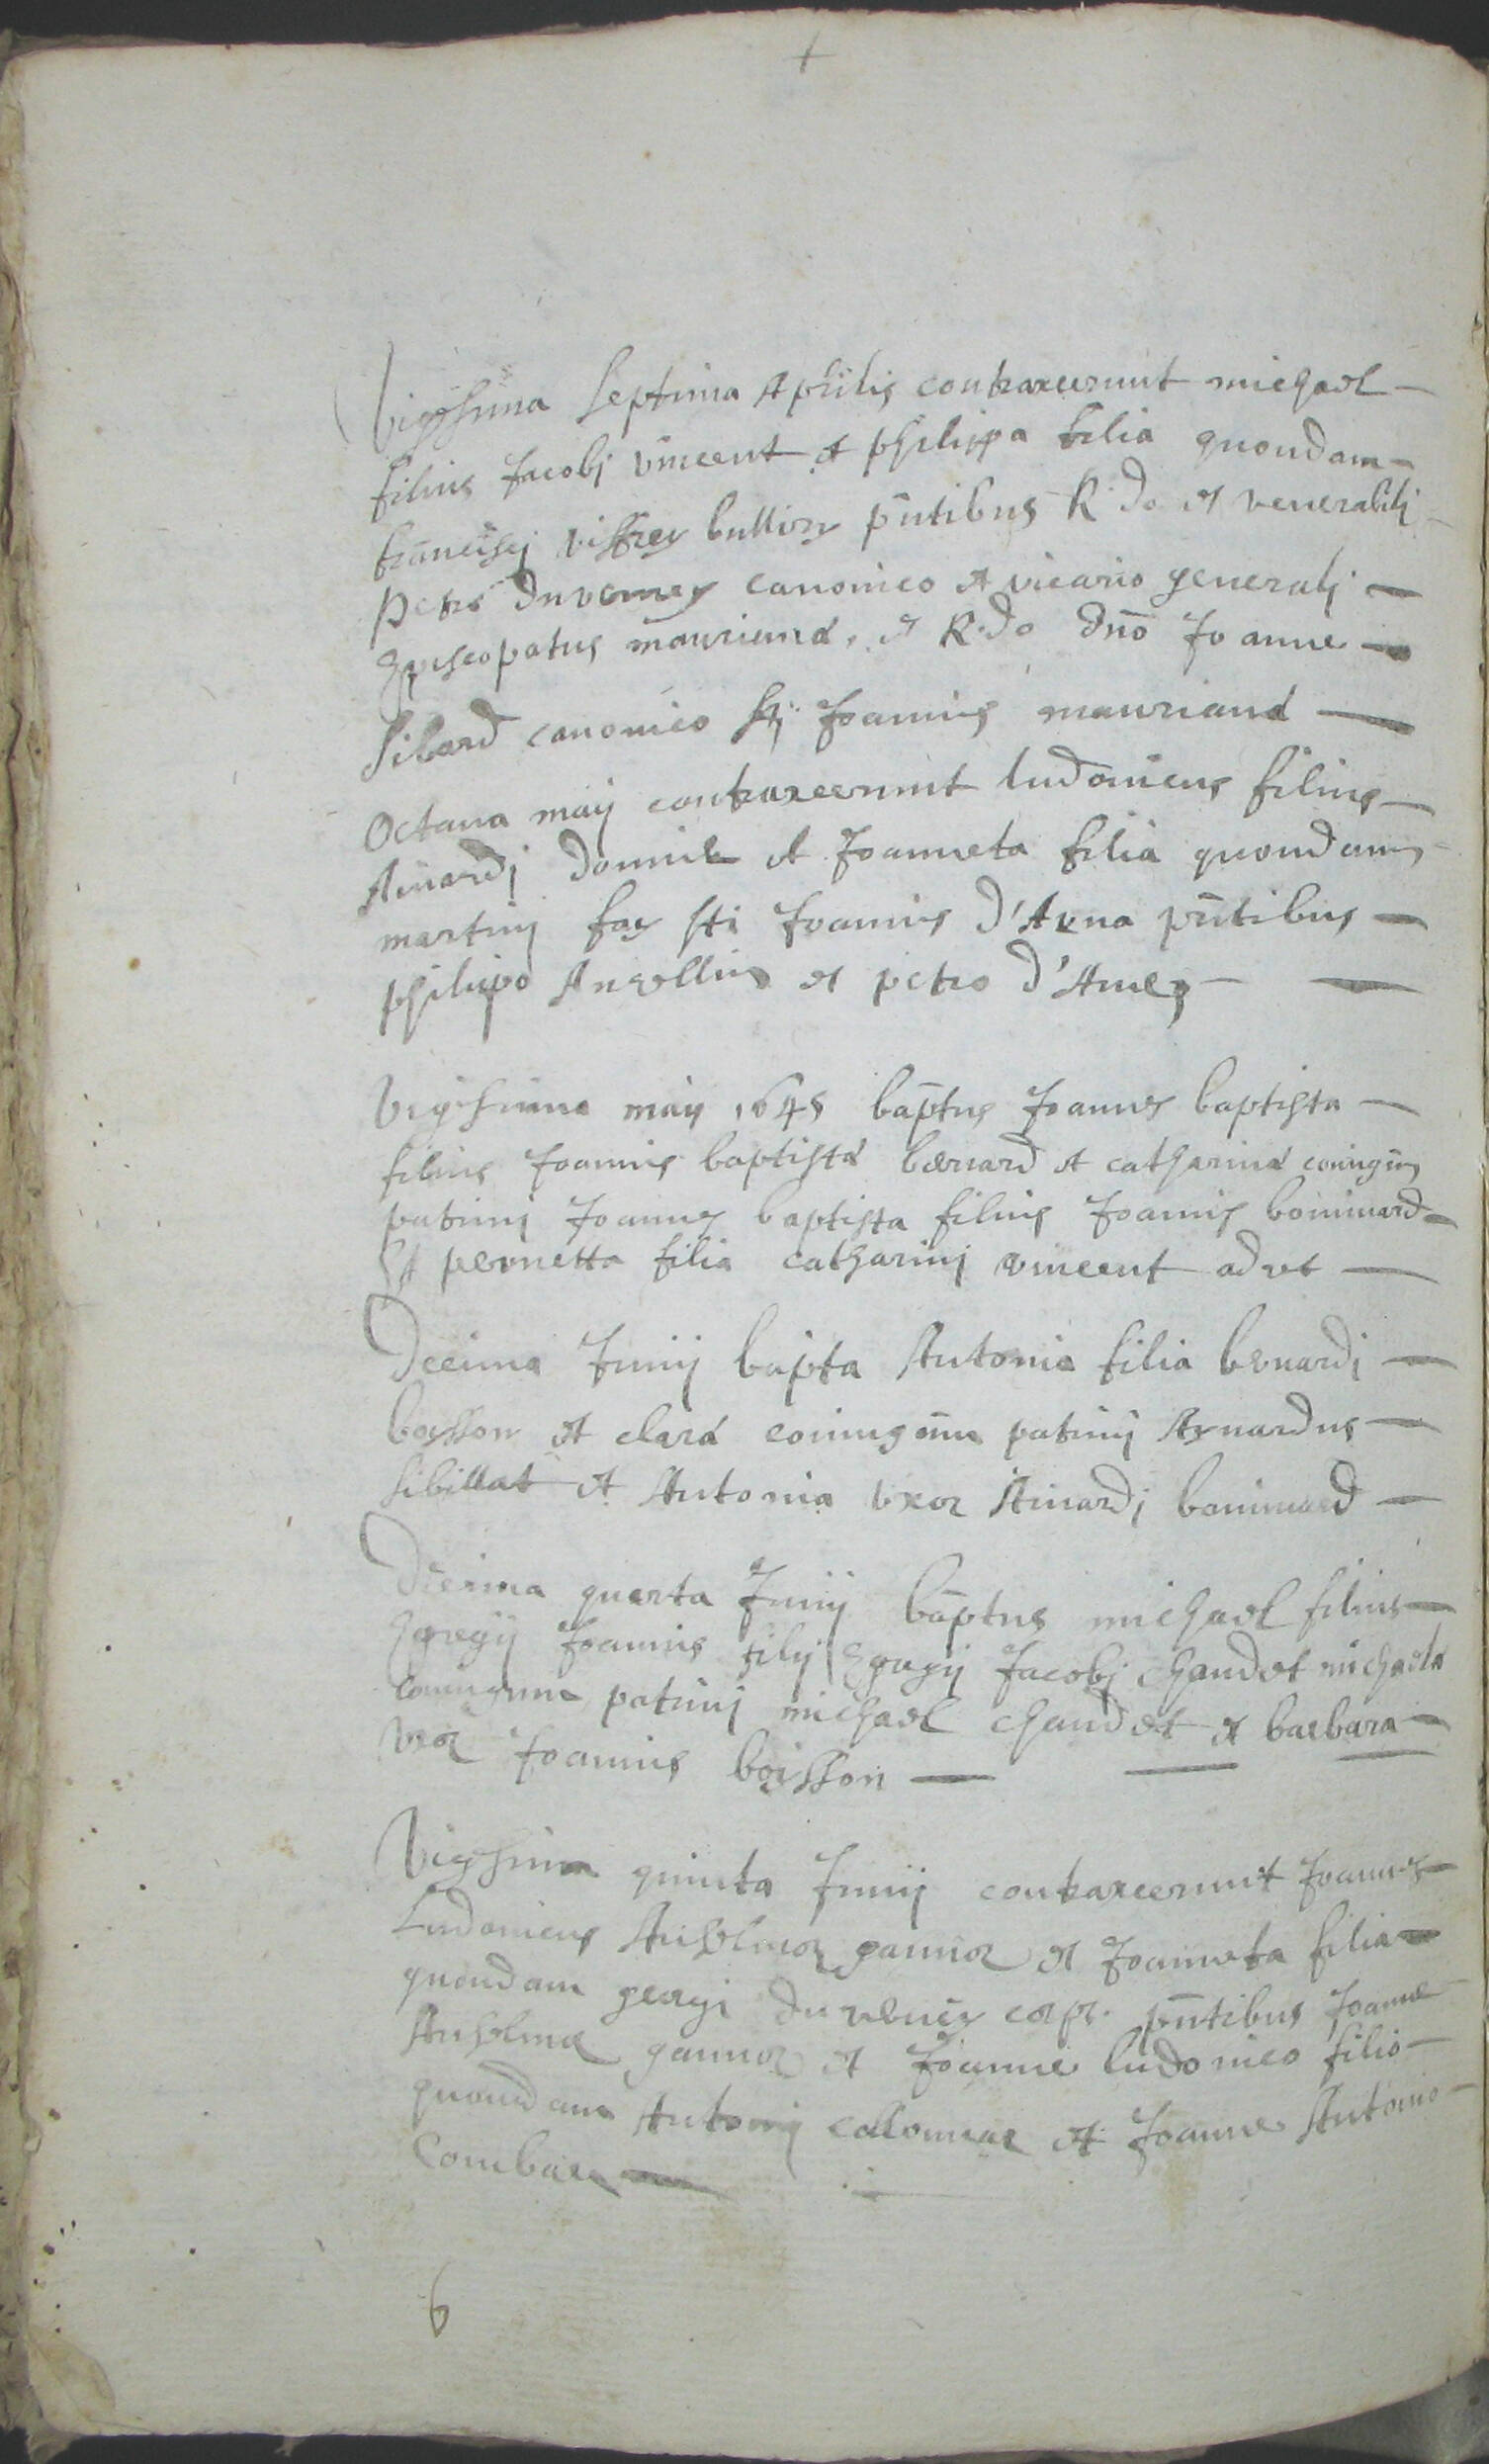 +
Vigessima septima Aprilis contraxerunt michael
filius Jacobj vincent et philippa filia quondam
francisej viffrey bullion pntibus R do et venerabilj
Petro duverney canonico et vicario generalj
Episcopatus mauriana. et R.do dno Joanne
Sibard canonico Sti Joannis mauriana
Octava maij contraxerunt ludovicus filius
Ainardj domine et Joanneta filia quondam
martinj fay sti Joannis d'Arva pntibus
philippo Anvellin et petro d'Amez
Vigessima maij 1645 baptus Joannes baptista
filius Joannis baptista bernard et catharina coniugum
patrinj Joannes baptista filius Joannis boninard
Et pernetta filia catharinj vincent advt
Decima Junij bapta Antonia filia bernardj
boysson et clara coniugum patrinj Aynardus
sibillat et Antonia vxor Ainardj boninard
Decima quarta Junij baptus michael filius
Egregij Joannis filij Egregij Jacobj chaudet michaela
coniugum patrinj michael chaudet et barbara
vxor Joannis boisson
Vigessima quinta Junij contraxerunt Joannes
Ludovicus Anselmoz gannoz et Joanneta filia
quondam georgi duverney pntibus Joanne
Anselme gannoz et Joanne ludovico filio
quondam Antonij et Joanne Antonio
Combaz
6